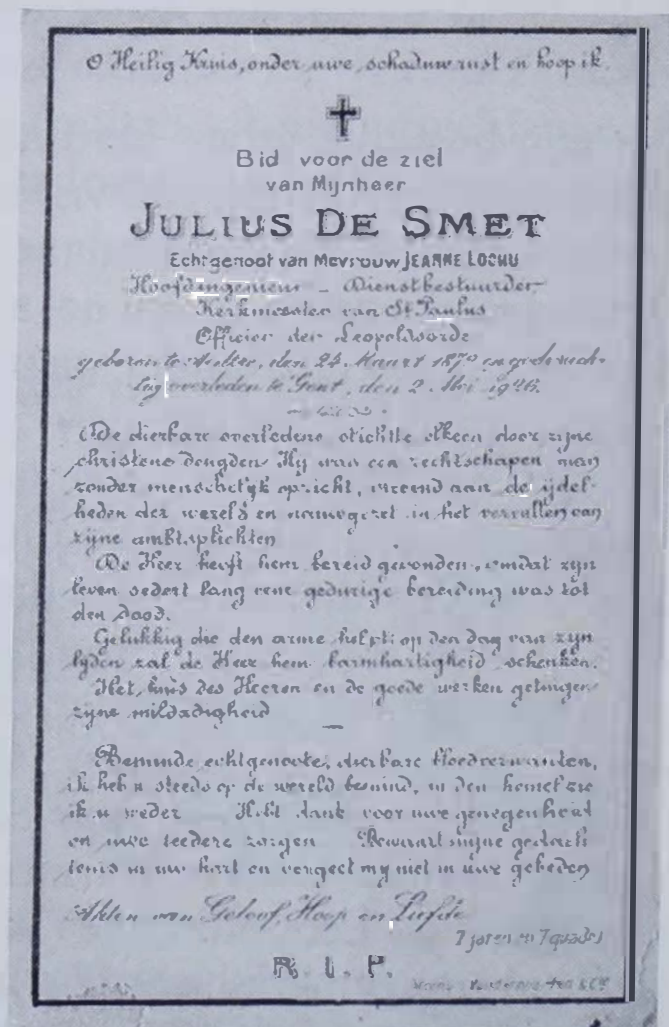 O Heilig Kruis, onder uwe, schaduw rust en hoop ik.
Bid voor de ziel
van Mijnheer
JULIUS DE SMET
Echtgenoot van Mevrouw JEANNE LOCHU
Hoofdingenieur – Dienstbestuurder
Kerkmeester van St Paulus
Officier der Leopoldsorde
geboren te Aelter, den 24 Maart 1870 en godvruch-
tig overleden te Gent, den 2 Mei 1926.
De dierbare overledene stichtte elkeen door zijne
christene deugden. Hij was een rechtschapen man
zonder menschelijk opzicht, vreemd aan de ijdel-
heden der wereld en nauwgezet in het vervullen van
zijne ambtsplichten
De Heer heeft hem bereid gevonden, omdat zijn
leven sedert lang eene gedurige bereiding was tot
den dood.
Gelukkig die den arme helpt: op den dag van zijn
lijden zal de Heer hem barmhartigheid schenken.
Het huis des Heeren en de goede werken getuigen
zijne mildadigheid
Beminde echtgenoote, dierbare bloedverwanten,
ik heb u steeds op de wereld bemind, in den hemel zie
ik u weder Hebt dank voor uwe genegenheid
en uwe teedere zorgen Bewaart mijne gedach
tenis in uw hart en vergeet mij niet in uwe gebeden
Akten van Geloof, Hoop en Liefde
7 jaren en 7 quadr
R. I. P.